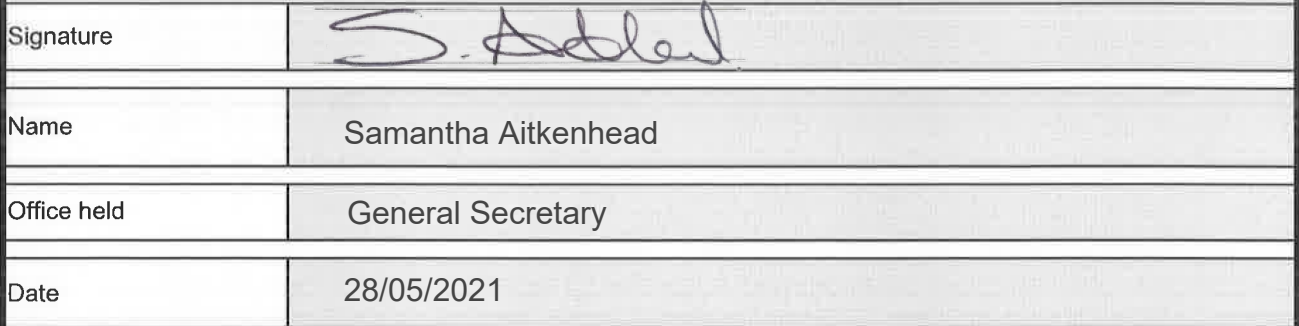 Signature
Name Samantha Aitkenhead
Office held General Secretary
Date 28/05/2021